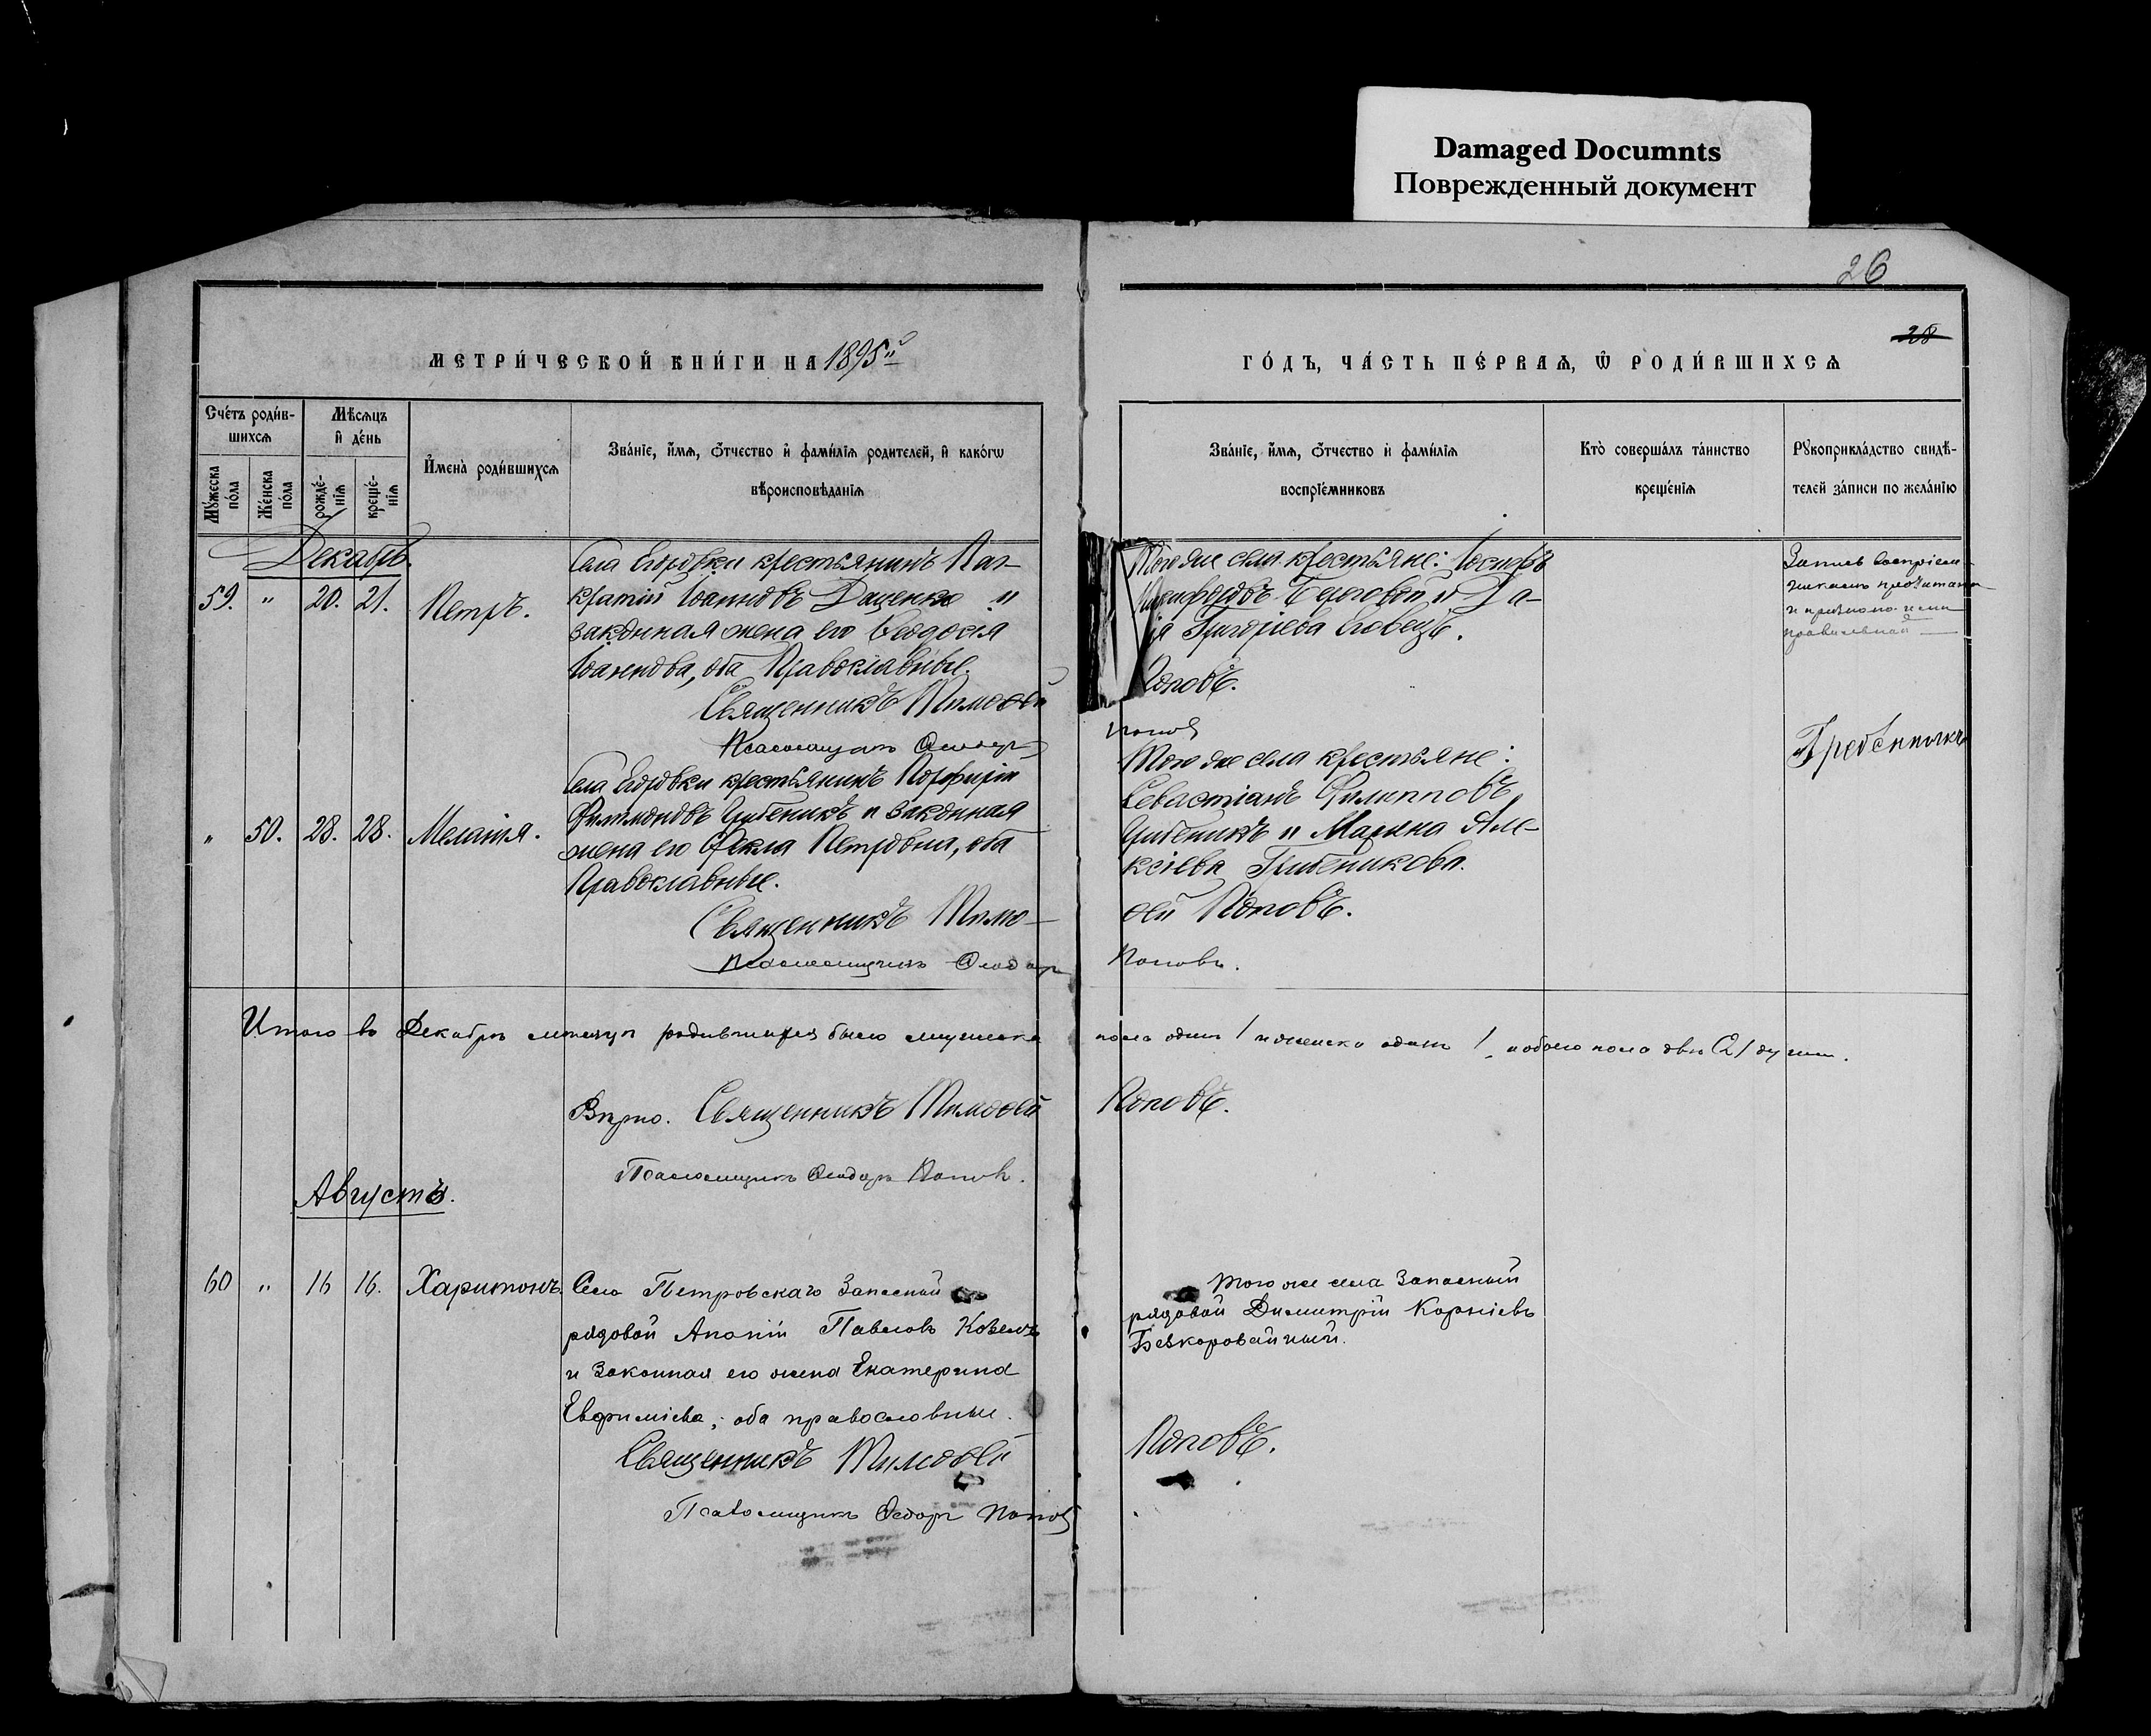 Damaged Documnts
Поврежденный документ
26
28
МЕТРИ́ЧЕСКОЙ КНИ́ГИ НА 1895й
ГО́ДЪ, ЧА́СТЬ ПЕ́РВАѦ, Ѡ҆ РОДИ́ВШИХСѦ
Сче́тъ роди́в-
шихсѧ
Мѣ́сѧцъ
и҆ де́нь
И҆мена̀ роди́вшихсѧ
Зва́нїе, и҆́мѧ, ѻ҆́тчество и҆ фами́лїѧ родителей, и҆ како́гѡ
вѣроисповѣ́данїѧ
Мꙋ́жеска
по́ла
Же́нска
по́ла
рожде́-
нїѧ
креще́-
нїѧ
Зва́нїе, и҆́мѧ, ѻ҆́тчество и҆ фами́лїѧ
воспрїе́мниковъ
Кто̀ соверша́лъ та́инство
креще́нїѧ
Рꙋкоприкла́дство свидѣ́-
телей за́писи по жела́нїю
Декабрь.
59. " 20. 21. Петръ.
Села Егоровки крестьянинъ Пан-
кратій Іоанновъ Даценко и
законная жена его Ѳеодосія
Іоаннова, оба Православные.
Священникъ Тимоѳей
Псаломщикъ Ѳеодоръ
Того же села крестьяне: Іосифъ
Береговой и
Григоріева
Поповъ.
Попов
Запись воспріем-
никамъ прочитана
и признана ими
правильной
Гребенникъ
" 50. 28. 28. Меланія.
Села Егоровки крестьянинъ Порфирій
Филимоновъ и законная
жена его Ѳекла Петровна, оба
Православные.
Священникъ Тимо-
Псаломщикъ Ѳеодоръ
Того же села крестьяне:
Севастіанъ Филипповъ
и Марина Але-
ксіева
ѳей Поповъ.
Поповъ.
Итого въ Декабрѣ мѣсяцѣ родившихся было мужеска
пола одинъ 1 и женска одинъ 1, обоего пола двѣ (2) души.
Вѣрно. Священникъ Тимоѳей
Поповъ.
Псаломщикъ Ѳеодоръ Поповъ.
Августъ.
60 " 16 16. Харитонъ.
Села Петровскаго Запасный
рядовой Павловъ
и законная его жена Екатерина
Евфиміева, оба православные.
Священникъ Тимоѳей
Псаломщикъ Ѳеодоръ Попов
Того же села Запасный
рядовой Димитрій Корніевъ
Безкоровайный.
Поповъ.